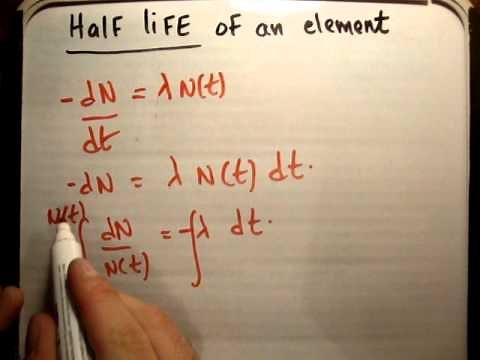 Half liFE of an element
- dN/dt = λ N(t)
-dN = λ N(t) dt.
N(t) ∫ dN/N(t) = -∫ λ dt.